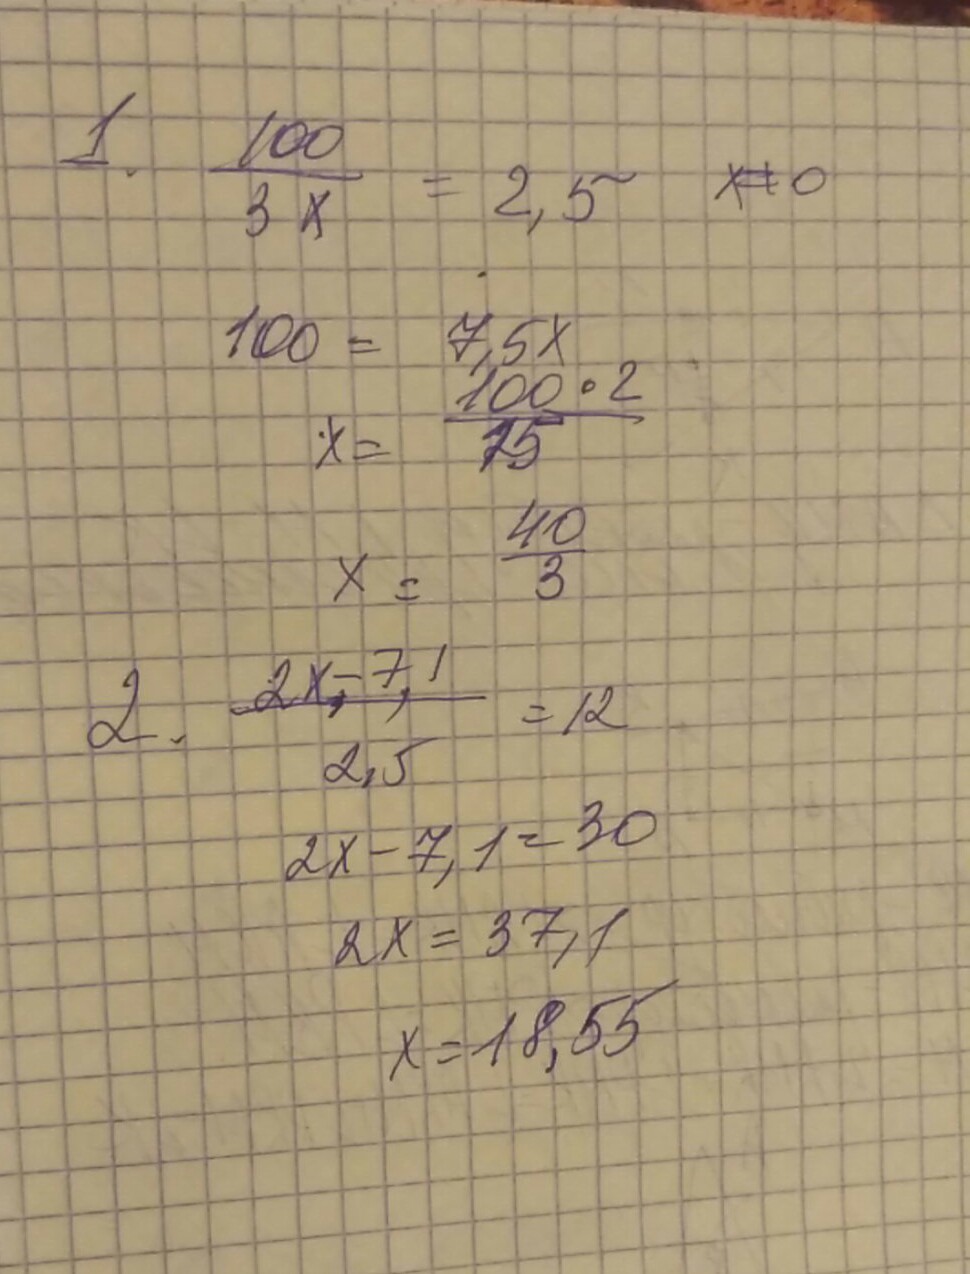 1. 100 / 3x = 2,5 x≠0
100 = 7,5x
x = 100·2 / 15
x = 40 / 3
2. 2x-7,1 / 2,5 = 12
2x-7,1=30
2x=37,1
x=18,55